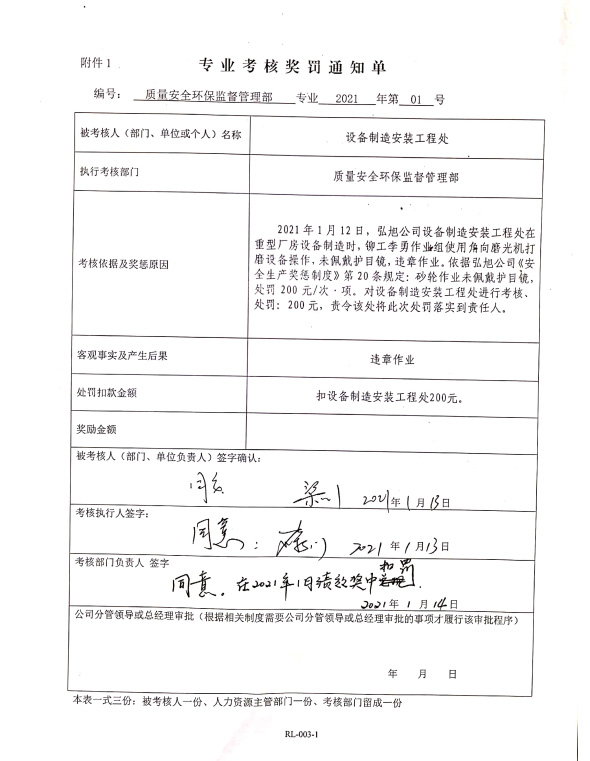 附件1
专业考核奖罚通知单
编号： 质量安全环保监督管理部 专业 2021 年第 01 号
被考核人（部门、单位或个人）名称 设备制造安装工程处
执行考核部门 质量安全环保监督管理部
考核依据及奖惩原因
2021年1月12日，弘旭公司设备制造安装工程处在
重型厂房设备制造时，铆工李勇作业组使用角向磨光机打
磨设备操作，未佩戴护目镜，违章作业。依据弘旭公司《安
全生产奖惩制度》第20条规定：砂轮作业未佩戴护目镜，
处罚200元/次·项。对设备制造安装工程处进行考核、
处罚：200元，责令该处将此次处罚落实到责任人。
客观事实及产生后果 违章作业
处罚扣款金额 扣设备制造安装工程处200元。
奖励金额
被考核人（部门、单位负责人）签字确认：
同意 2021年1月13日
考核执行人签字：
同意： 2021年1月13日
考核部门负责人 签字
同意。在2021年1月绩效奖中扣罚.
2021年1月14日
公司分管领导或总经理审批（根据相关制度需要公司分管领导或总经理审批的事项才履行该审批程序）
年 月 日
本表一式三份：被考核人一份、人力资源主管部门一份、考核部门留成一份
RL-003-1